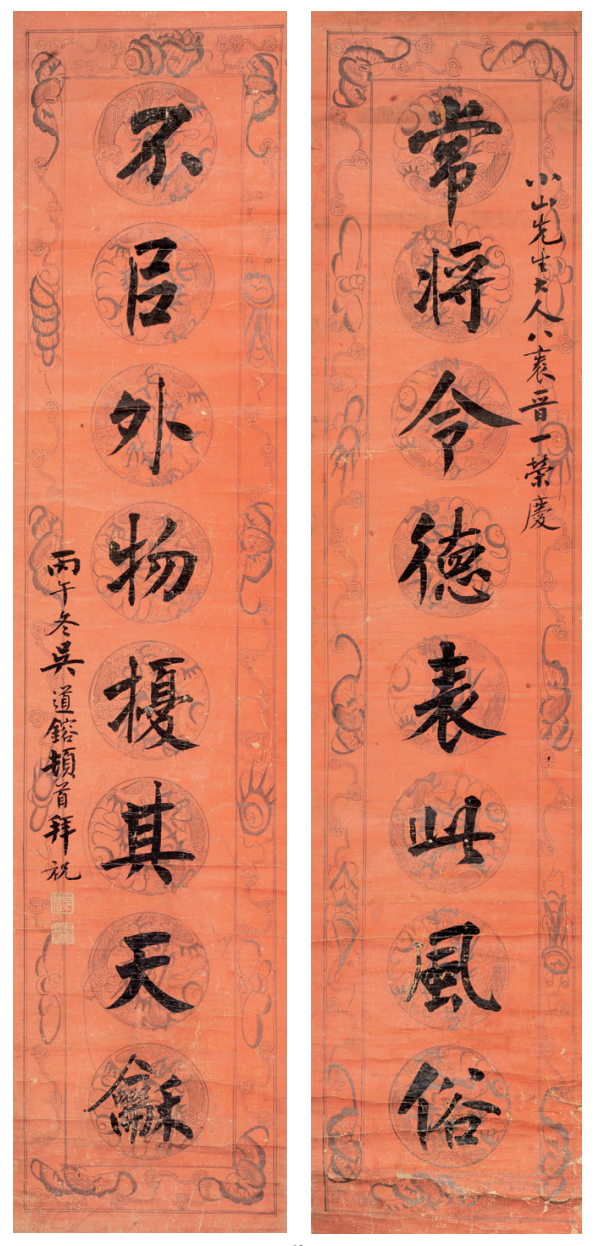 小山先生大人八袠晋一榮慶
常將令德表此風俗
不㠯外物擾其天龢
丙午冬吳道鎔頓首拜祝